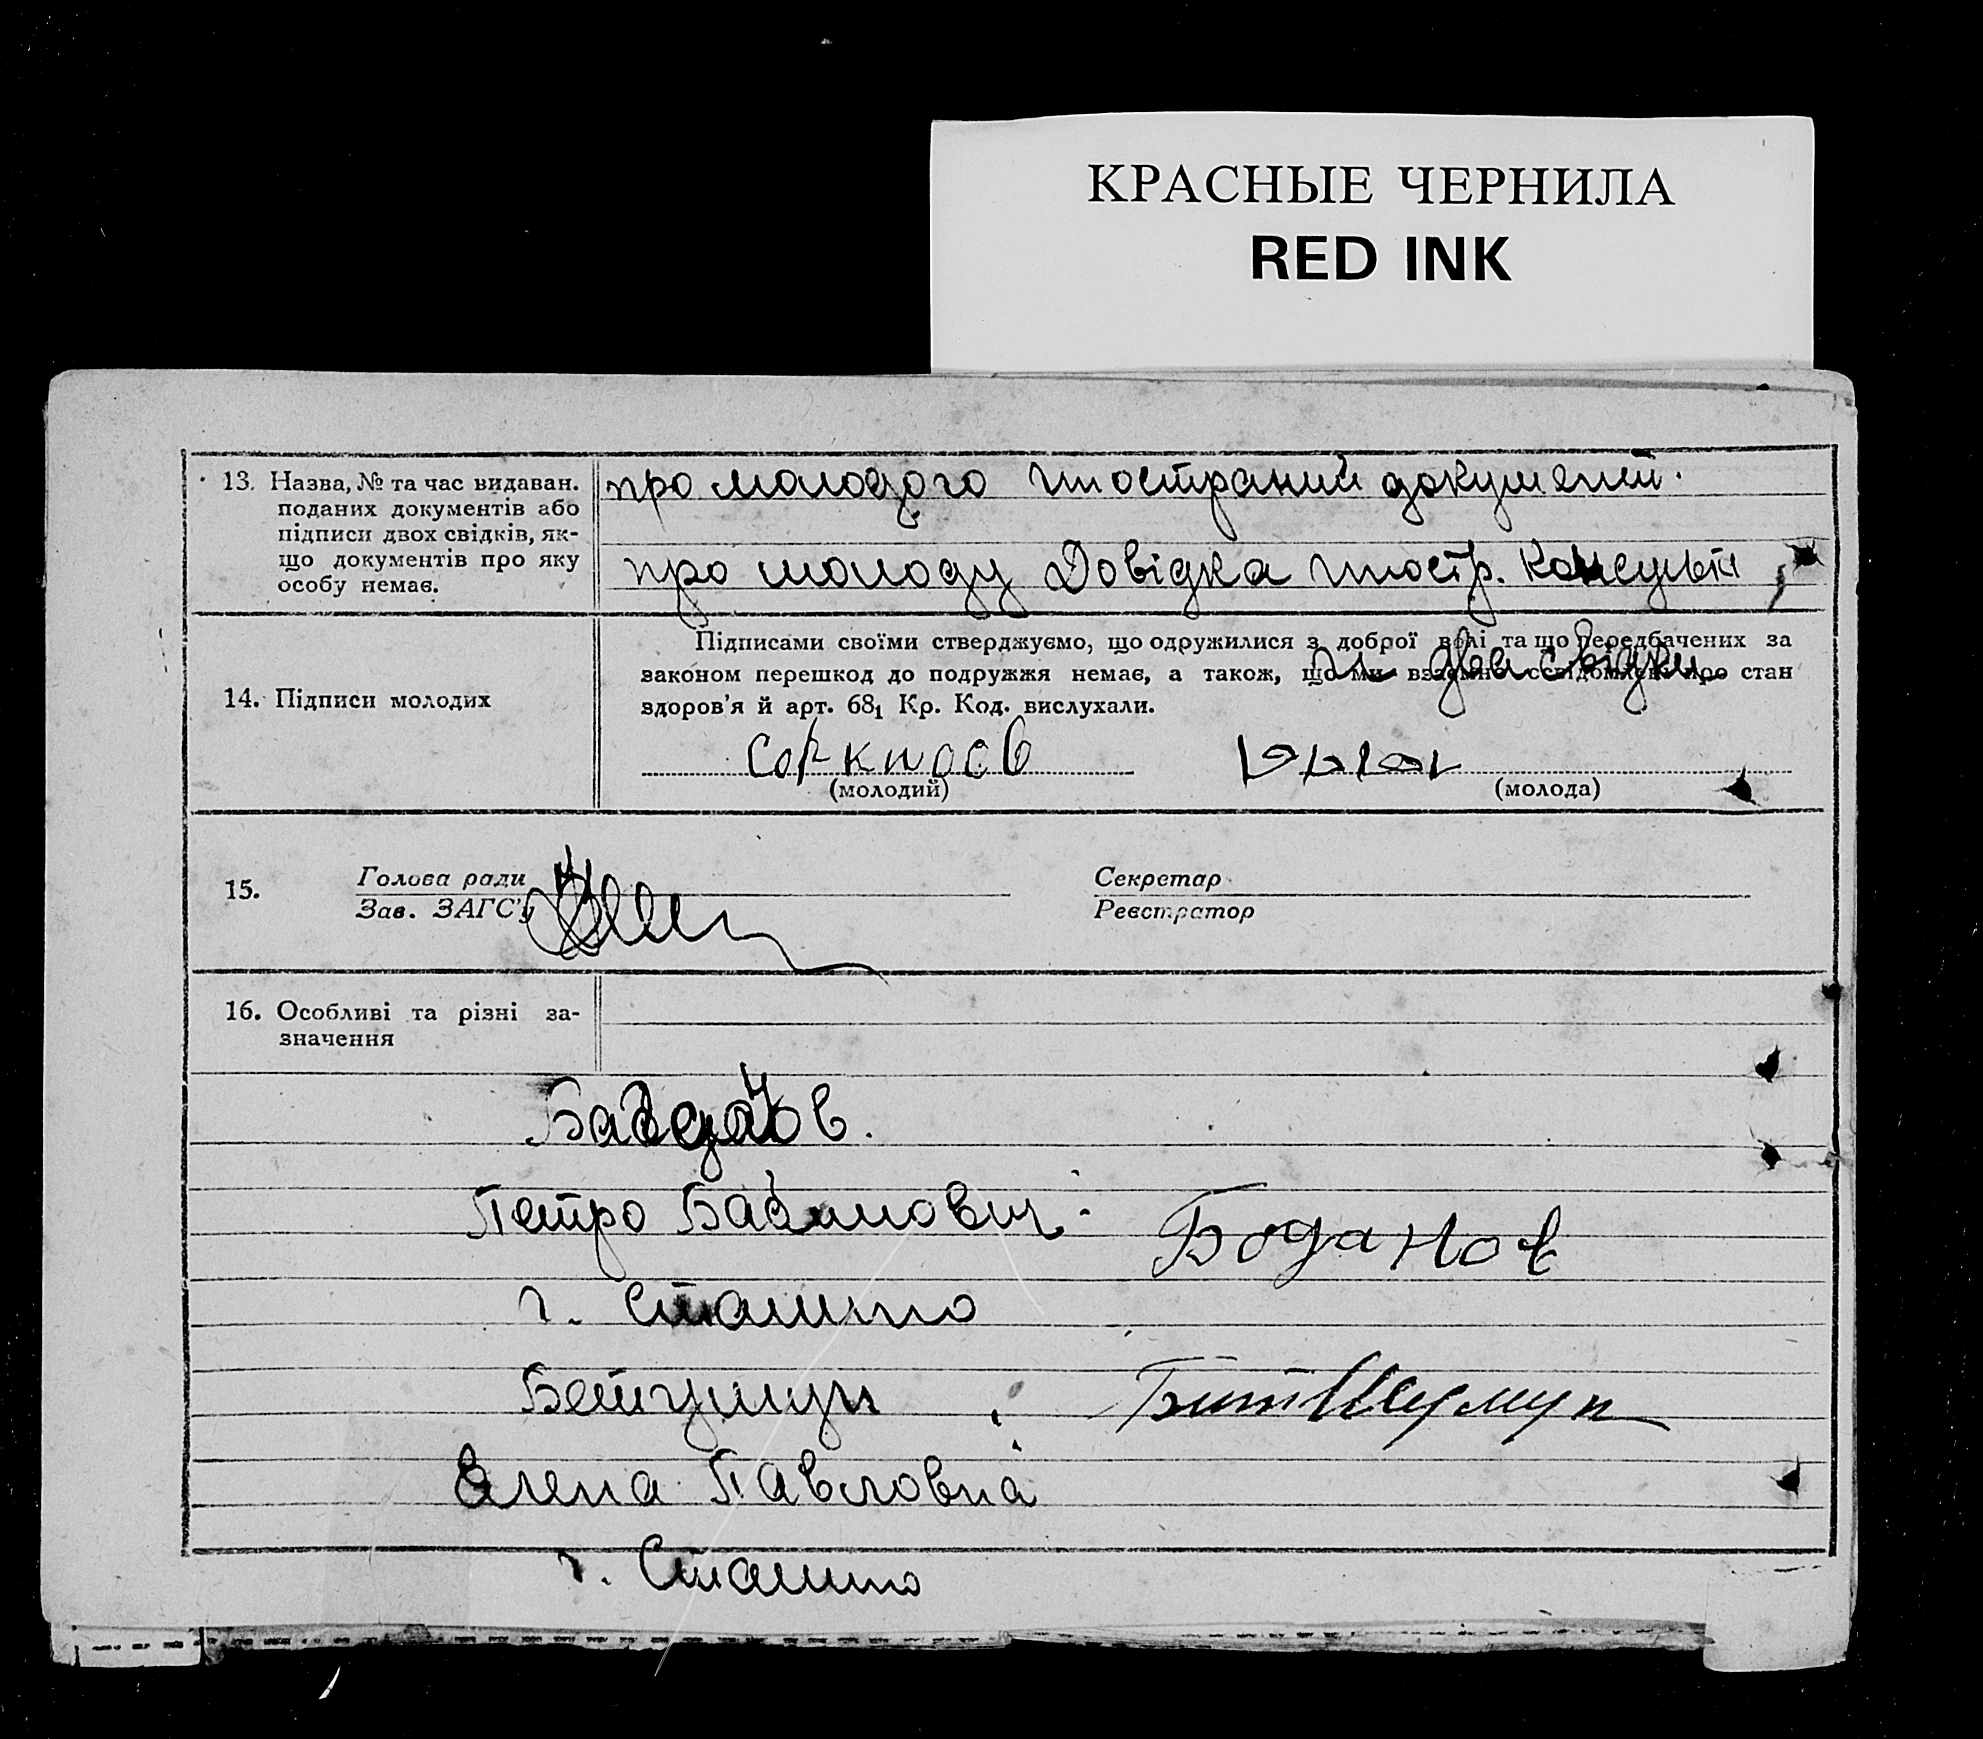 КРАСНЫЕ ЧЕРНИЛА
RED INK
13. Назва, № та час видаван. поданих документів або підписи двох свідків, як-
що документів про яку особу немає.
про молодого иностраний документ.
про молоду Довідка иностр. консульт,
два свідки
14. Підписи молодих
Підписами своїми стверджуємо, що одружилися з доброї волі та що передбачених за
законом перешкод до подружжя немає, а також, що ми взаємно освідомлені про стан
здоров'я й арт. 68₁ Кр. Код. вислухали.
(молодий)
(молода)
15.
Голова ради
Зав. ЗАГС'у
Секретар
Реєстратор
16. Особливі та різні за-
значення
Петро
Боданов
г. Сталино
Елена Павловна
г. Сталино